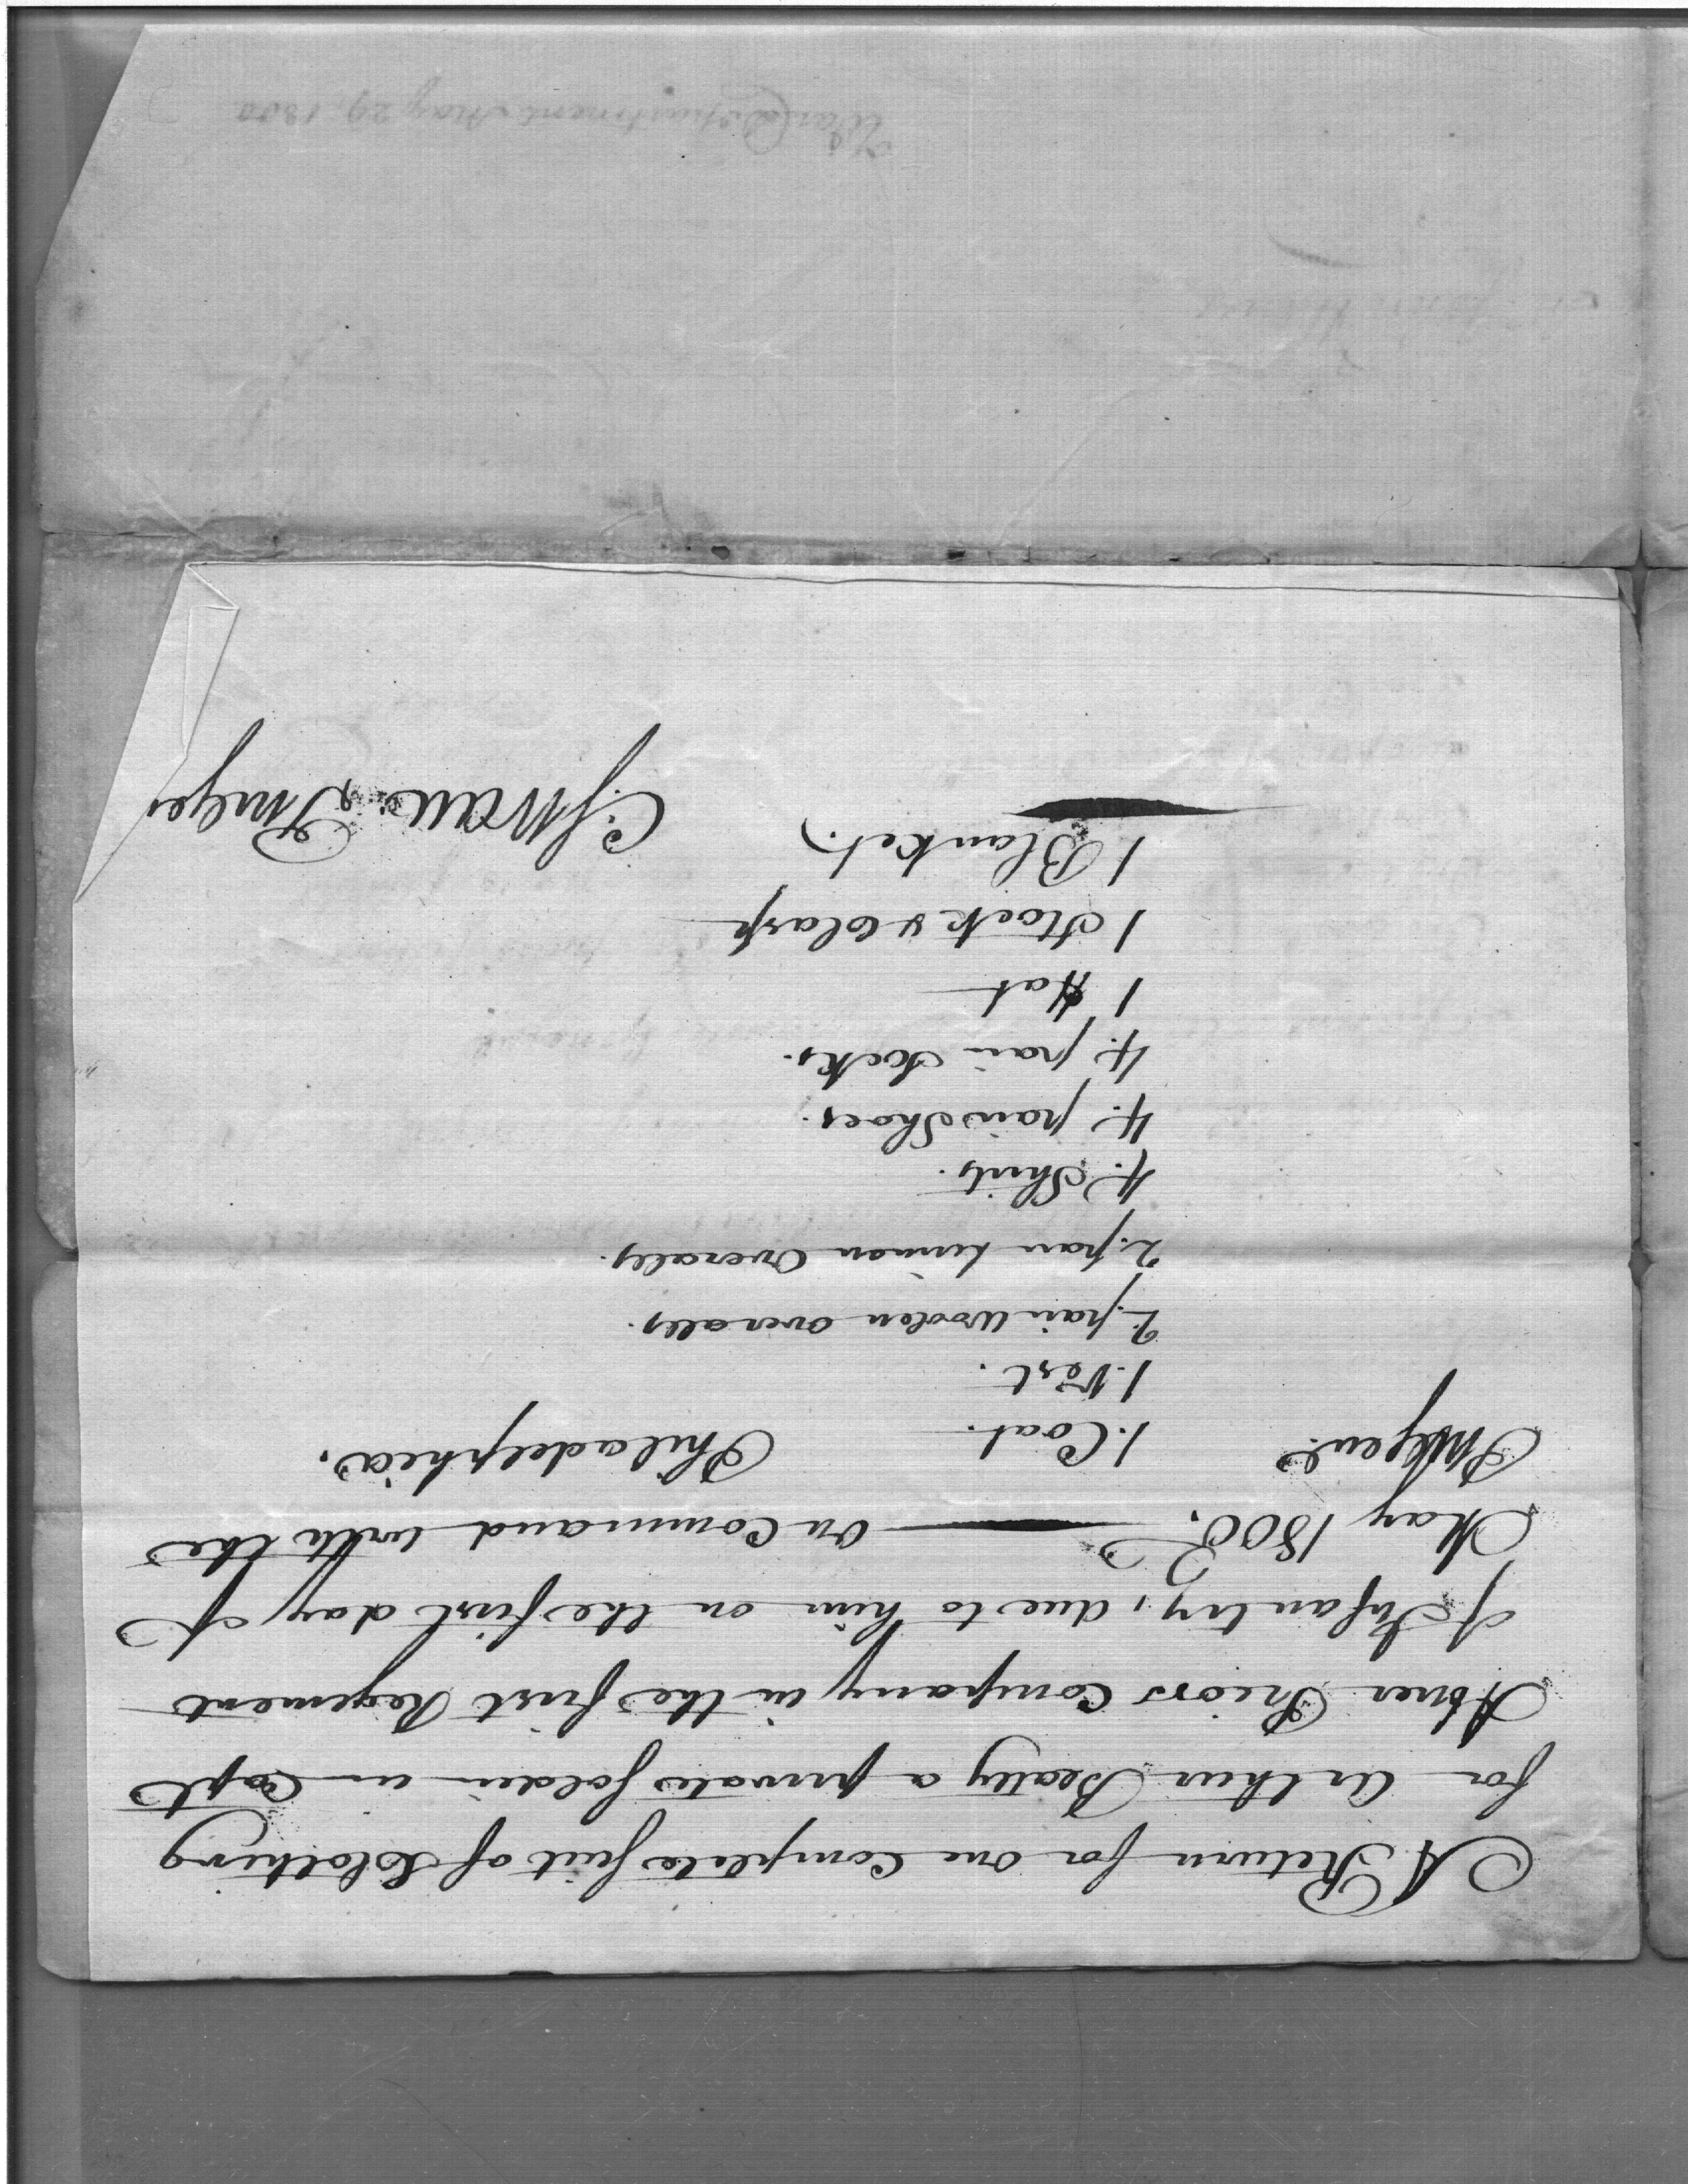 A Return for one Complete Suit of Clothing
for Arthur Beatty a private Soldier in Capt
Abner Priors Company in the first Regiment
of Infantry, due to him on the first day of
May 1800. on Command with the
PMGen.l Philadelphia.
1. Coat.
1. Vest.
2. pair Woolen overalls.
2. pair Linnen Overalls.
4. Shirts.
4. pair Shoes.
4. pair Socks.
1 Hat
1 Stock & Clasp
1 Blanket.
C. Swan. PMGe
War Department May 29. 1800